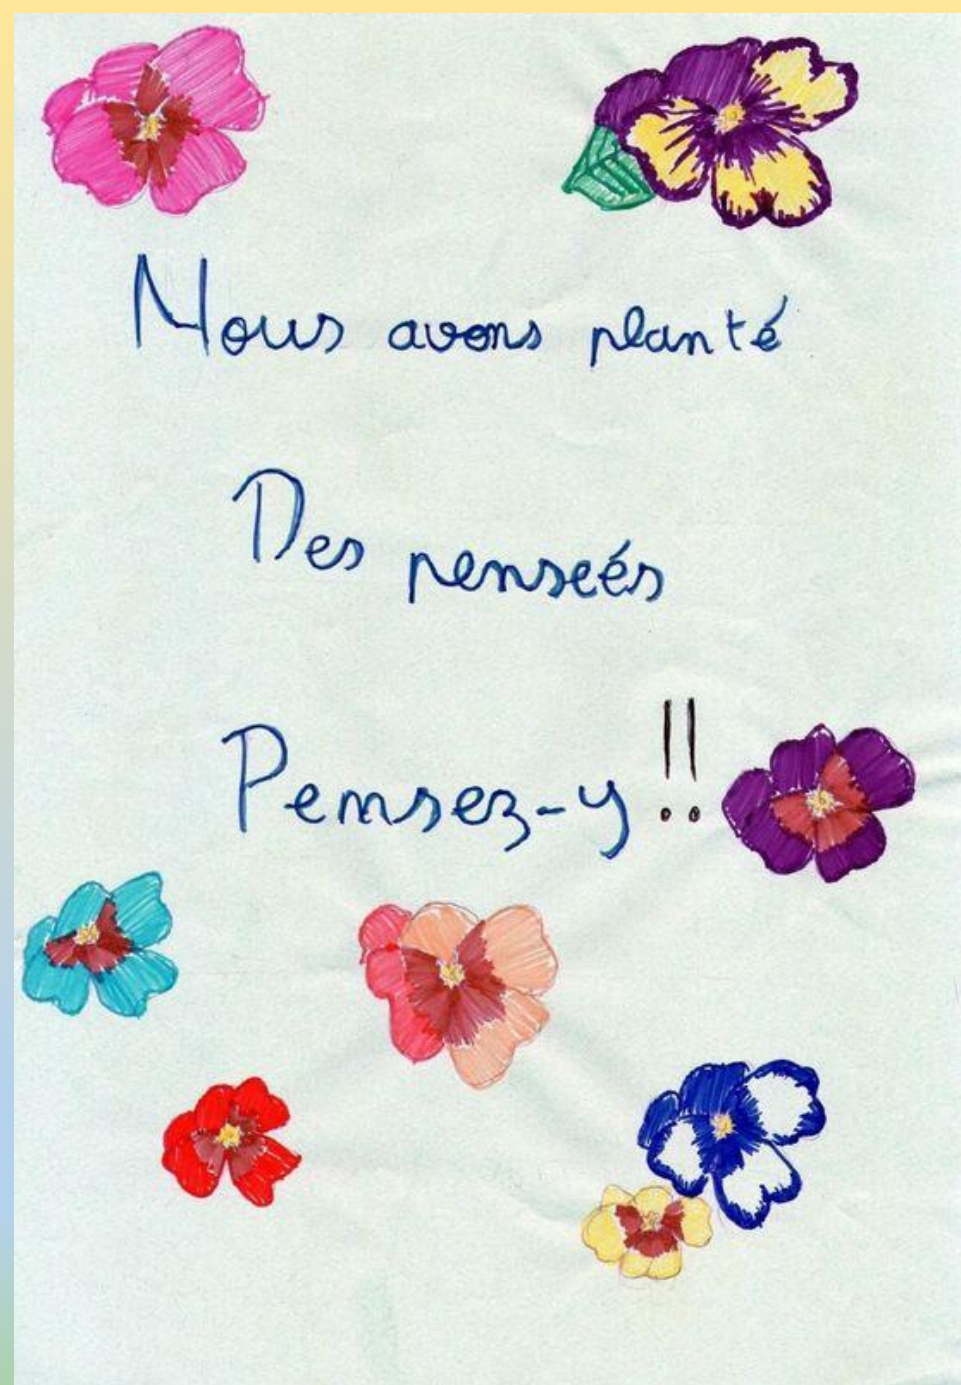 Nous avons planté
Des penseés
Pensez-y !!